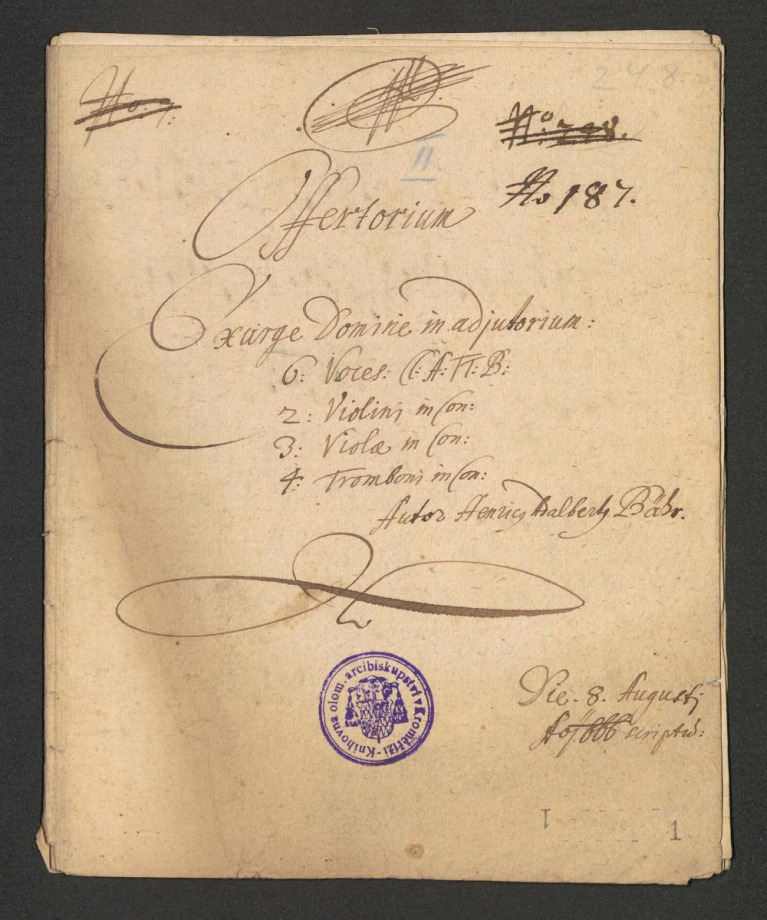 No. 7.
248
No. 248.
II
No 187.
Offertorium
Exurge Domine in adjutorium:
6: Voces: C: A: T: B:
2: Violini in Con:
3: Violæ in Con:
4: Tromboni in Con:
Autor Henricq Adalbertq Bähr.
Knihovna olom. arcibiskupství v Kroměříži -
Die. 8. Augusti
scriptū:
1